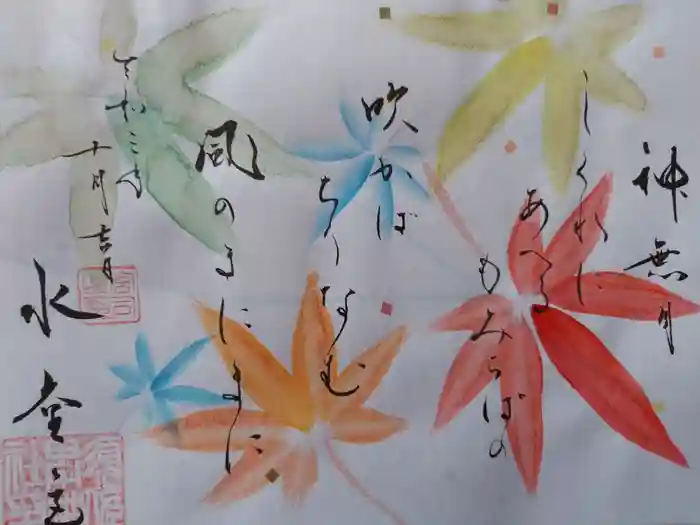 神無月
しぐれに
あへる
もみぢばの
吹かば
ちりなむ
風のまにまに
令和三年
十月吉日